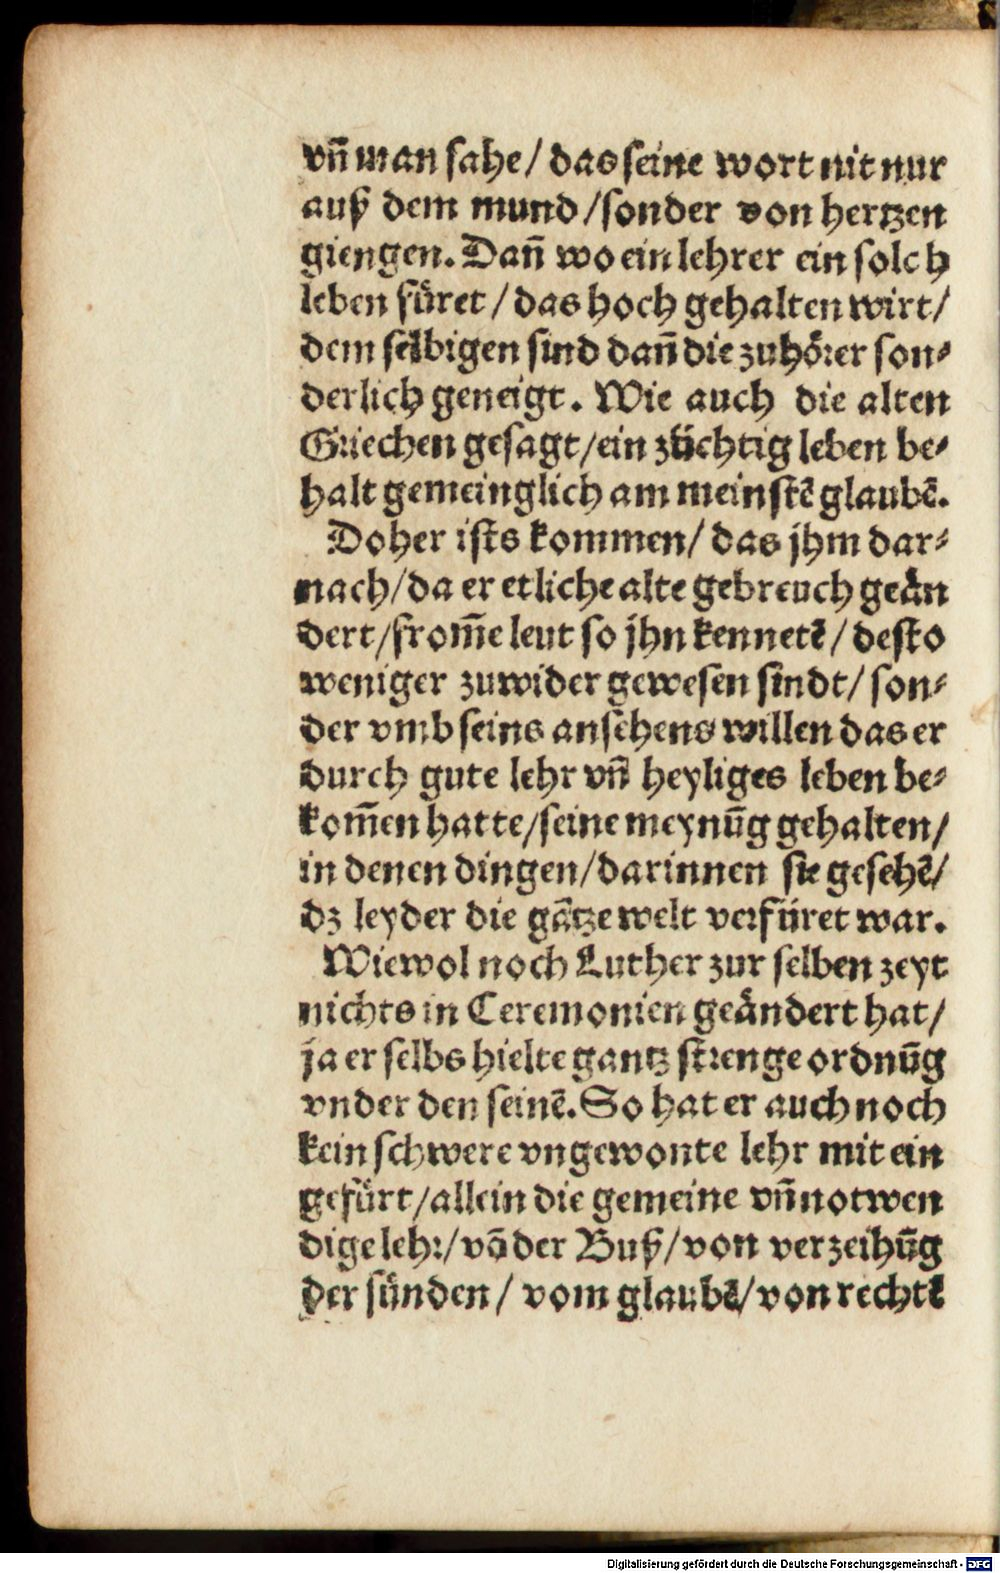 vñ man sahe/ das seine wort nit nur
auß dem mund/sonder von hertzen
giengen. Dañ wo ein lehrer ein solch
leben fuͤret/ das hoch gehalten wirt/
dem selbigen sind dañ die zuhoͤrer son⸗
derlich geneigt. Wie auch die alten
Griechen gesagt/ein zuͤchtig leben be⸗
halt gemeinglich am meinstē glaubē.
Doher ists kommen/ das jhm dar⸗
nach/da er etliche alte gebreuch geaͤn
dert/from̄e leut so jhn kennetē/ desto
weniger zuwider gewesen sindt/ son⸗
der vmb seins ansehens willen das er
durch gute lehr vñ heyliges leben be⸗
kom̄en hatte/seine meynūg gehalten/
in denen dingen/darinnen sie gesehē/
dz leyder die gātze welt verfüret war.
Wiewol noch Luther zur selben zeyt
nichts in Ceremonien geaͤndert hat/
ja er selbs hielte gantz strenge ordnūg
vnder den seinē. So hat er auch noch
kein schwere vngewonte lehr mit ein
gefuͤrt/allein die gemeine vñ notwen
dige lehr/vō der Buß/von verzeihūg
der suͤnden/ vom glaubē/von rechtē
Digitalisierung gefördert durch die Deutsche Forschungsgemeinschaft - DFG